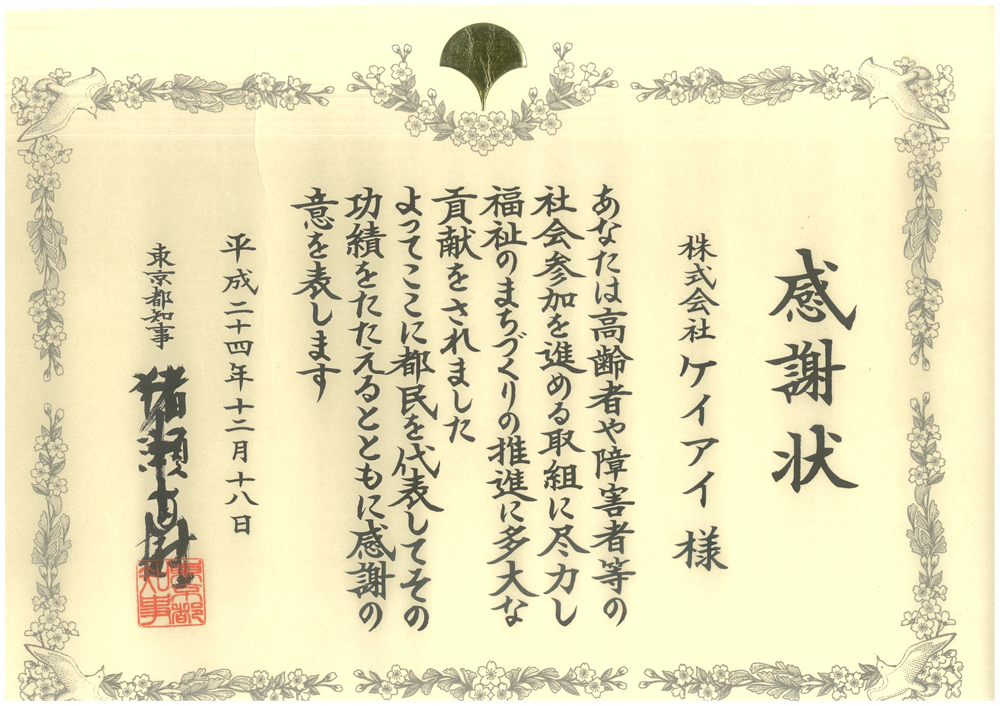 感謝状
株式会社ケイアイ 様
あなたは高齢者や障害者等の
社会参加を進める取組に尽力し
福祉のまちづくりの推進に多大な
貢献をされました
よってここに都民を代表してその
功績をたたえるとともに感謝の
意を表します
平成二十四年十二月十八日
東京都知事 猪瀬直樹
東京都知事